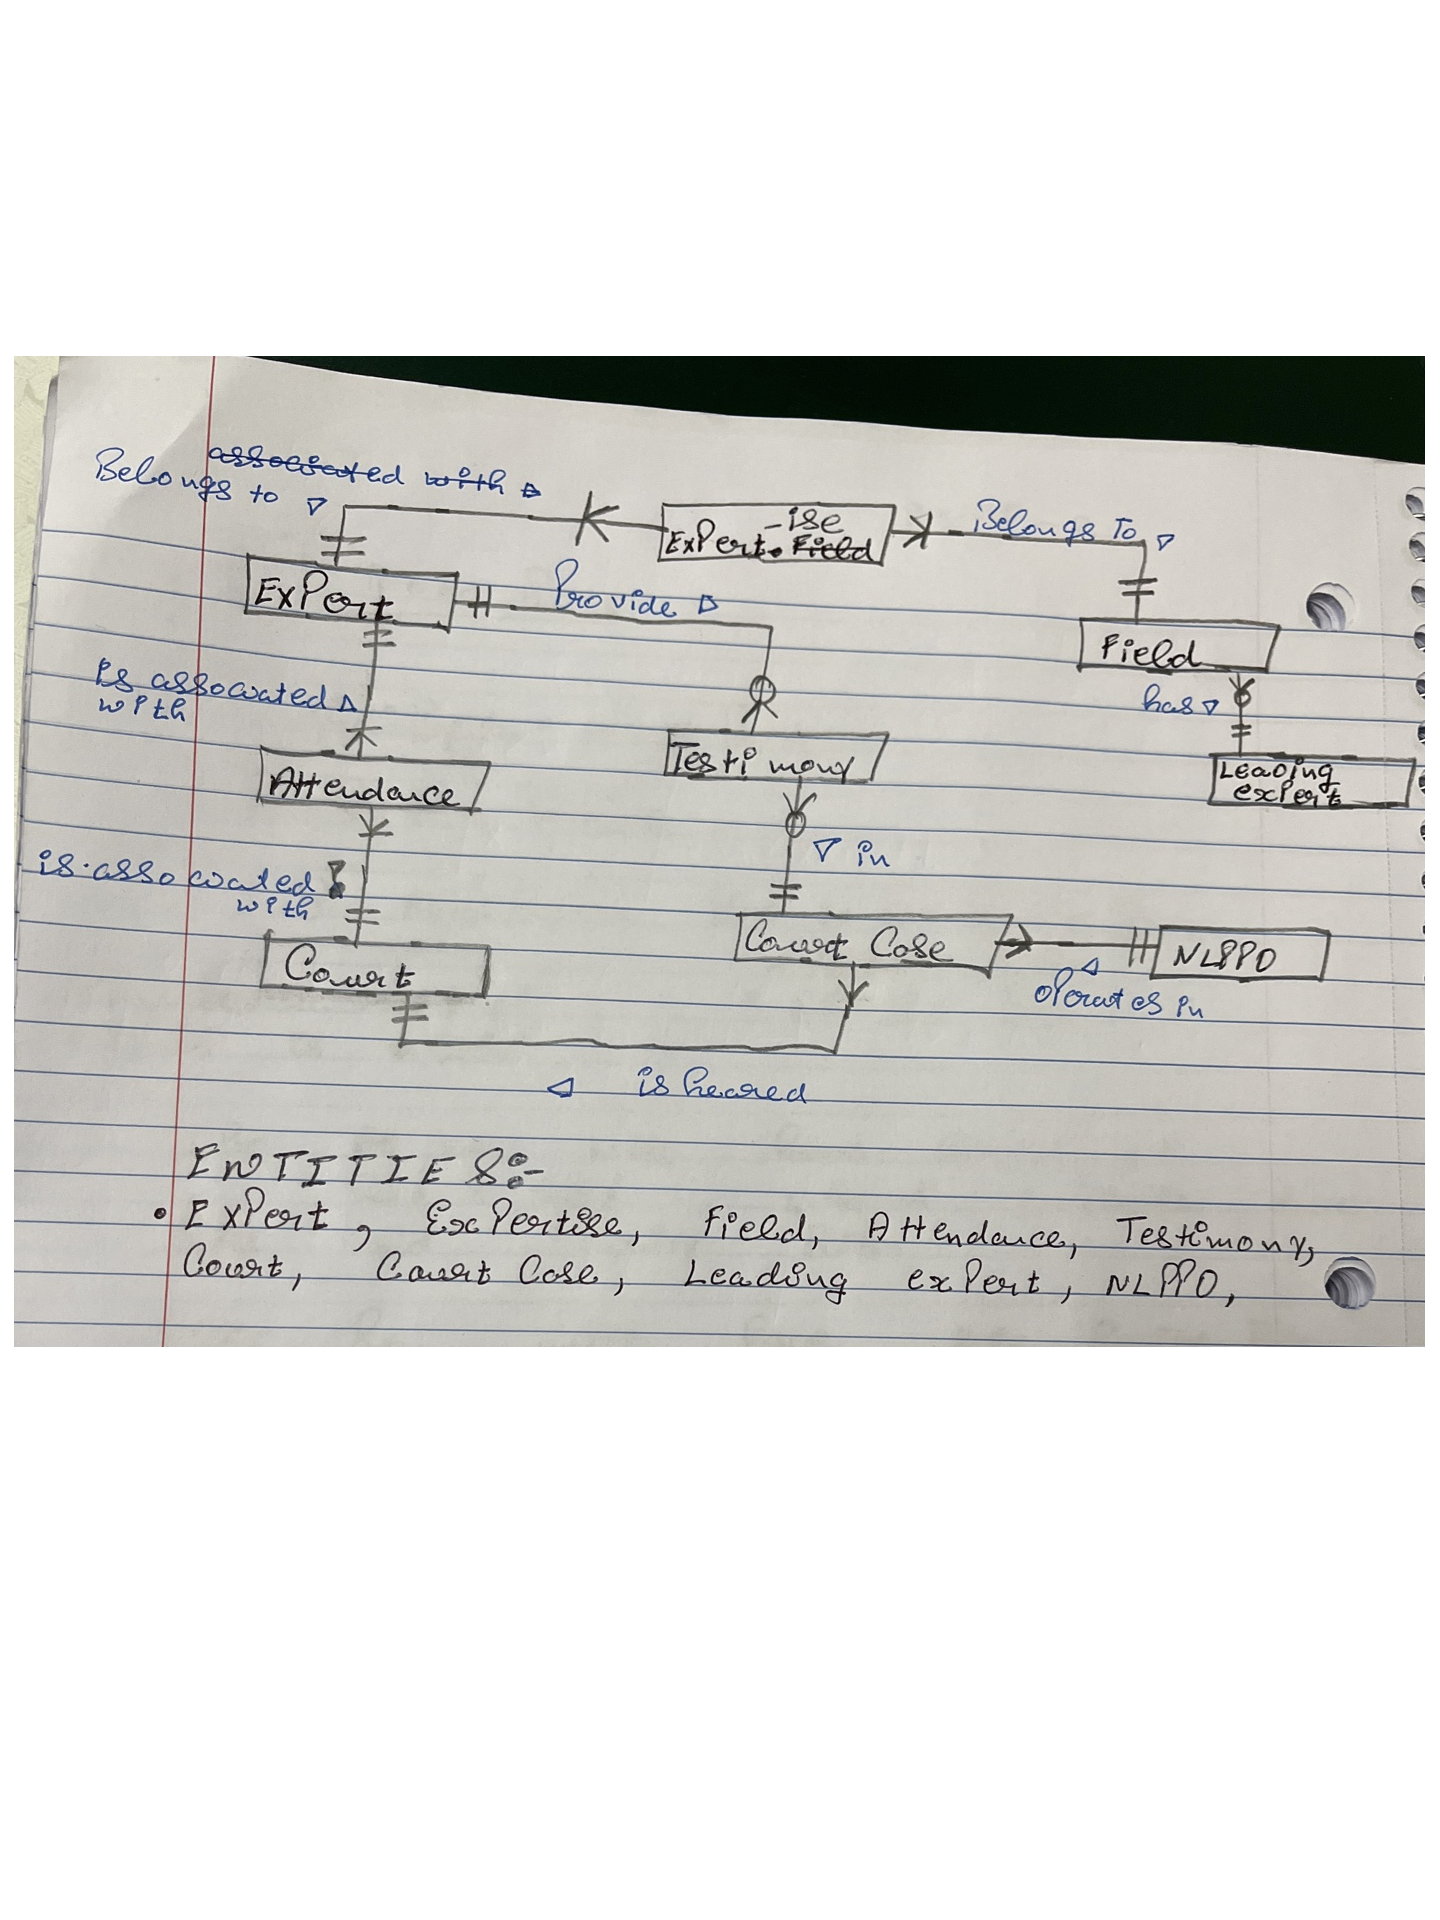 associated with
Belongs to
-ise
Expert. Field
Belongs To
Expert
Provide
Field
is associated
with
has
Testimony
Leading
expert
Attendance
in
is associated
with
Court Case
NLPPO
Court
operates in
is heared
ENTITIES:-
• Expert, Expertise, Field, Attendance, Testimony,
Court, Court Case, Leading expert, NLPPO,